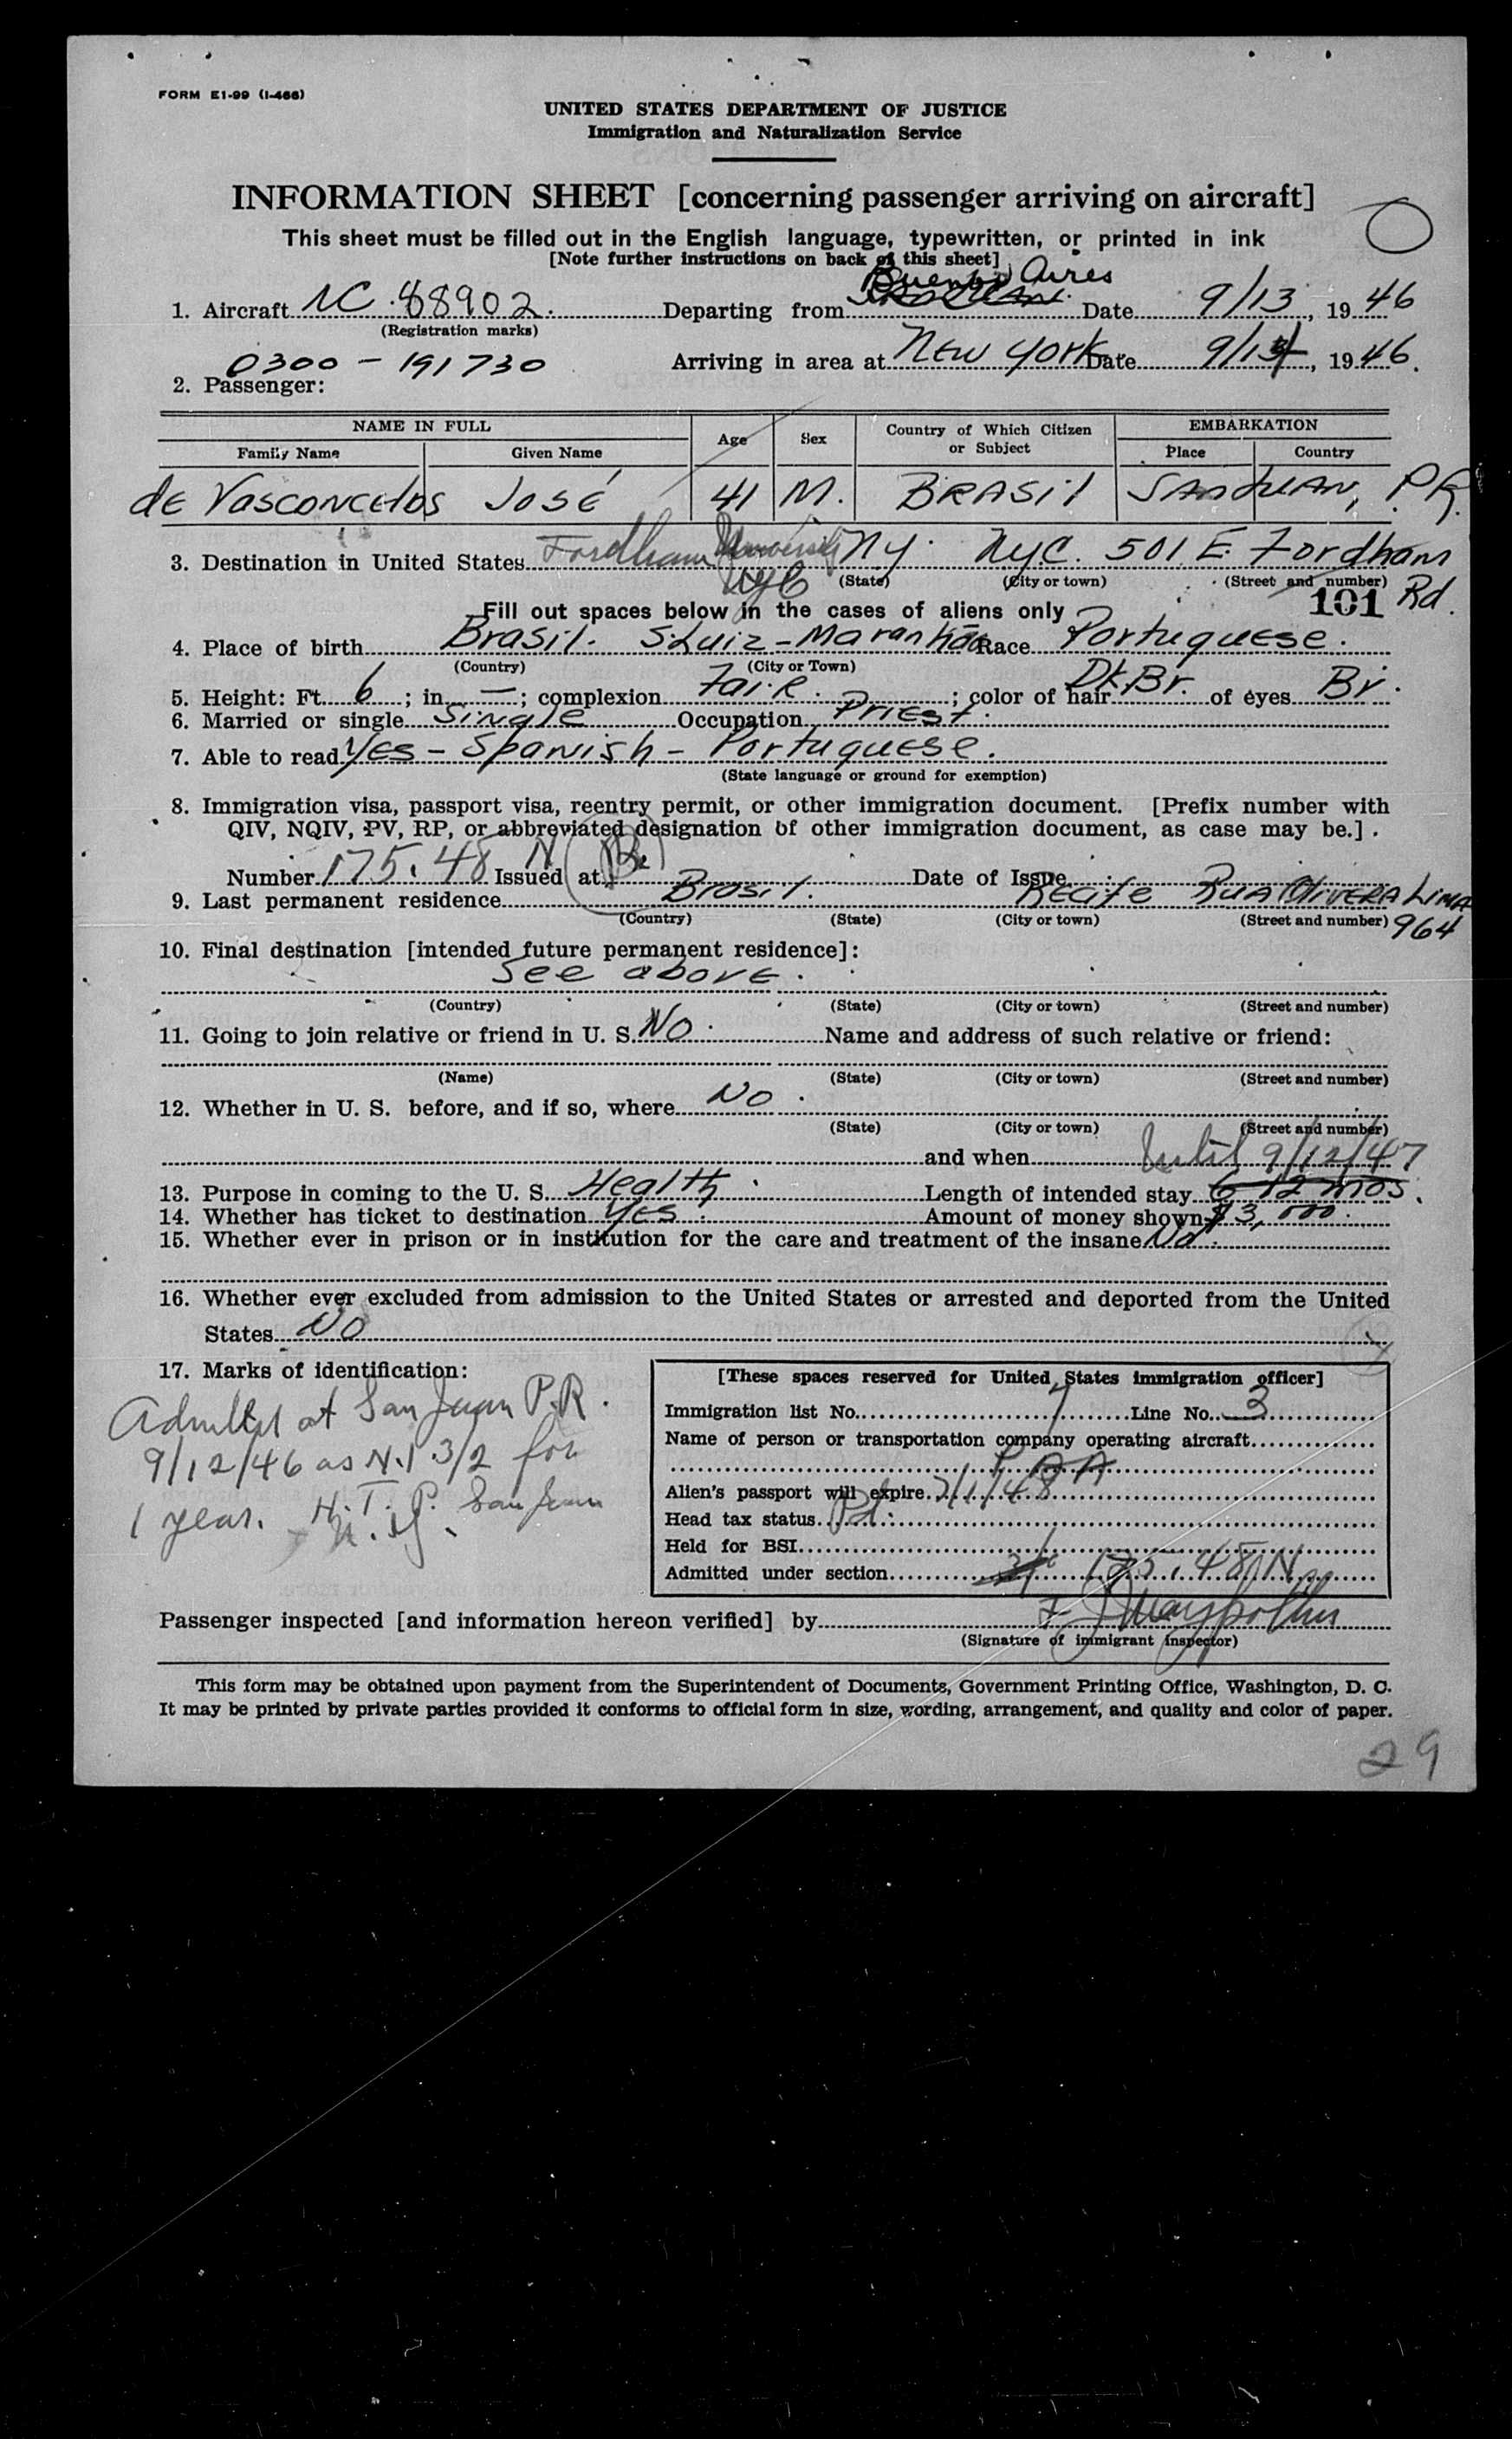 FORM E1-99 (I-466)
UNITED STATES DEPARTMENT OF JUSTICE
Immigration and Naturalization Service
INFORMATION SHEET [concerning passenger arriving on aircraft]
This sheet must be filled out in the English language, typewritten, or printed in ink
[Note further instructions on back of this sheet]
Buenos Aires
1. Aircraft NC 88902. Departing from Date 9/13, 1946
(Registration marks)
0300 - 191730 Arriving in area at New York Date 9/13, 1946.
2. Passenger:
NAME IN FULL Age Sex Country of Which Citizen or Subject EMBARKATION
Family Name Given Name Place Country
de Vasconcelos José 41 M. BRASil SAN JUAN, P.R.
3. Destination in United States Fordham University NY. NyC. 501 E. Fordham Rd.
NYC (State) (City or town) (Street and number)
101
Fill out spaces below in the cases of aliens only
4. Place of birth Brasil. S. Luiz - Maranhão Race Portuguese.
(Country) (City or Town)
5. Height: Ft. 6; in. —; complexion Fair.; color of hair Dk. Br. of eyes Br.
6. Married or single Single Occupation Priest.
7. Able to read Yes - Spanish - Portuguese.
(State language or ground for exemption)
8. Immigration visa, passport visa, reentry permit, or other immigration document. [Prefix number with
QIV, NQIV, PV, RP, or abbreviated designation of other immigration document, as case may be.].
Number 175.48 N Issued at Date of Issue
9. Last permanent residence Brasil. Recife Rua Olivera Lima
(Country) (State) (City or town) (Street and number) 964
10. Final destination [intended future permanent residence]:
See above.
(Country) (State) (City or town) (Street and number)
11. Going to join relative or friend in U. S. No. Name and address of such relative or friend:
(Name) (State) (City or town) (Street and number)
12. Whether in U. S. before, and if so, where No.
(State) (City or town) (Street and number)
and when Until 9/12/47
13. Purpose in coming to the U. S. Health. Length of intended stay 6 12 mos.
14. Whether has ticket to destination Yes. Amount of money shown $3,000.
15. Whether ever in prison or in institution for the care and treatment of the insane No.
16. Whether ever excluded from admission to the United States or arrested and deported from the United
States No
17. Marks of identification:
Admitted at San Juan P.R.
9/12/46 as N.I 3/2 for
1 year. H. T. P. San Juan
[These spaces reserved for United States immigration officer]
Immigration list No. Line No. 3
Name of person or transportation company operating aircraft
P A A
Alien's passport will expire 2/1/48
Head tax status Pd.
Held for BSI
Admitted under section 175.48 N
Passenger inspected [and information hereon verified] by
(Signature of immigrant inspector)
This form may be obtained upon payment from the Superintendent of Documents, Government Printing Office, Washington, D. C.
It may be printed by private parties provided it conforms to official form in size, wording, arrangement, and quality and color of paper.
29